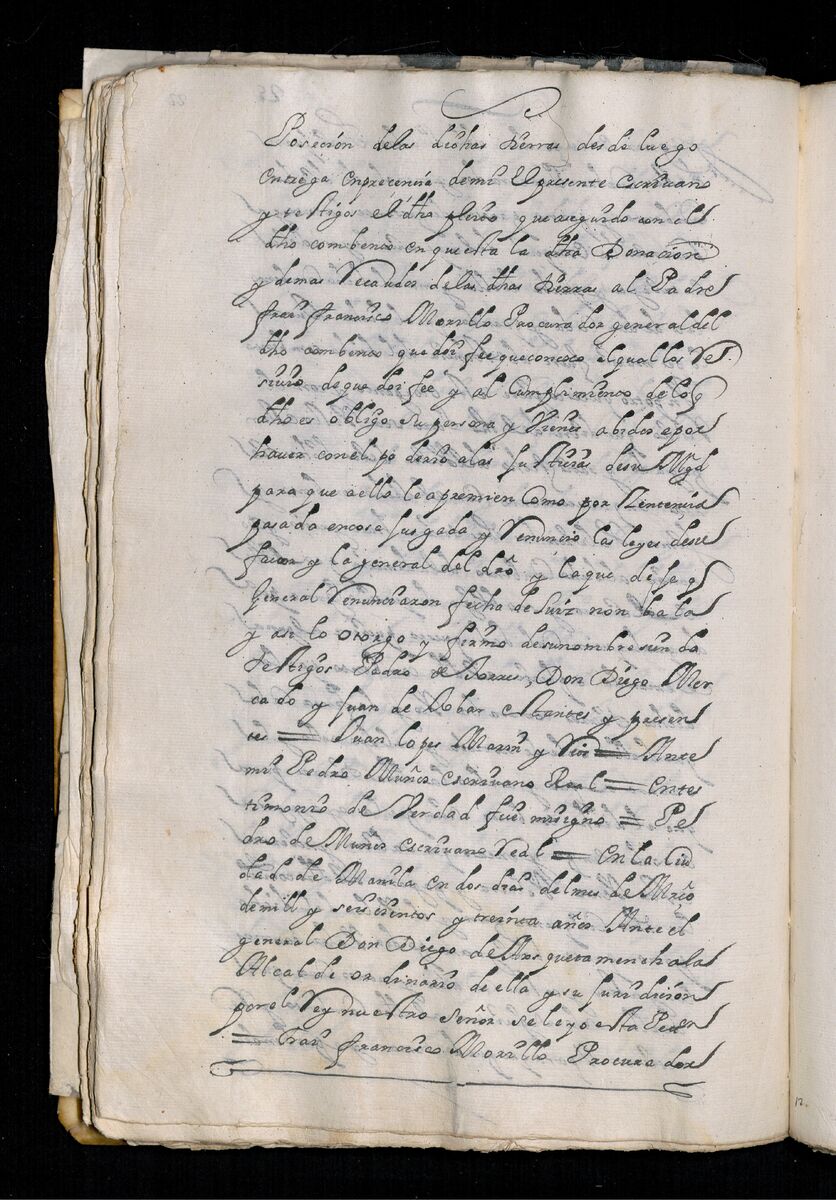 Poseción delas dichas tierras desde luego
entrega enprecencia demi El presente escrivano
y testigos el dho pleito que aseguido con el
dho combento en questa la dha Donacion
y demas Recaudos delas dhas tierras al Padre
frai francisco Morillo Procurador general del
dho combento que doi fee queconosco elqual los Res
sivio deque doi fee y al Cumplimiento delo q
dho es obligo su persona y Vienes abidos epor
haver conel poderio alas Justicias desu Magd
para que aello le apremien Como por Sentencia
pasada encosa jusgada y Renuncio las leyes desu
favor y la general del dro y laque dise q
General Renunciazon fecha de leies non bala
y asi lo otorgo y firmo desunombre siendo
testigos Pedro de Torres, Don Diego Mer
cado y Juan de Aobar estantes y presen
tes = Juan lopes Marin y = Ante
mi Pedro Muños escrivano Real = en tes
timonio de Verdad fise misigno = Pe
dro de Muños escrivano Real = en la Ciu
dad de Manila en dos dias delmes de Março
demill y seiscientos y treinta años Ante el
general Don Diego de Ars quetamenchala
Alcalde ordinario de ella y su juridicion
porel Rey nuestro señor se leyo esta Peticn
= frai francisco Morillo Procurador
12